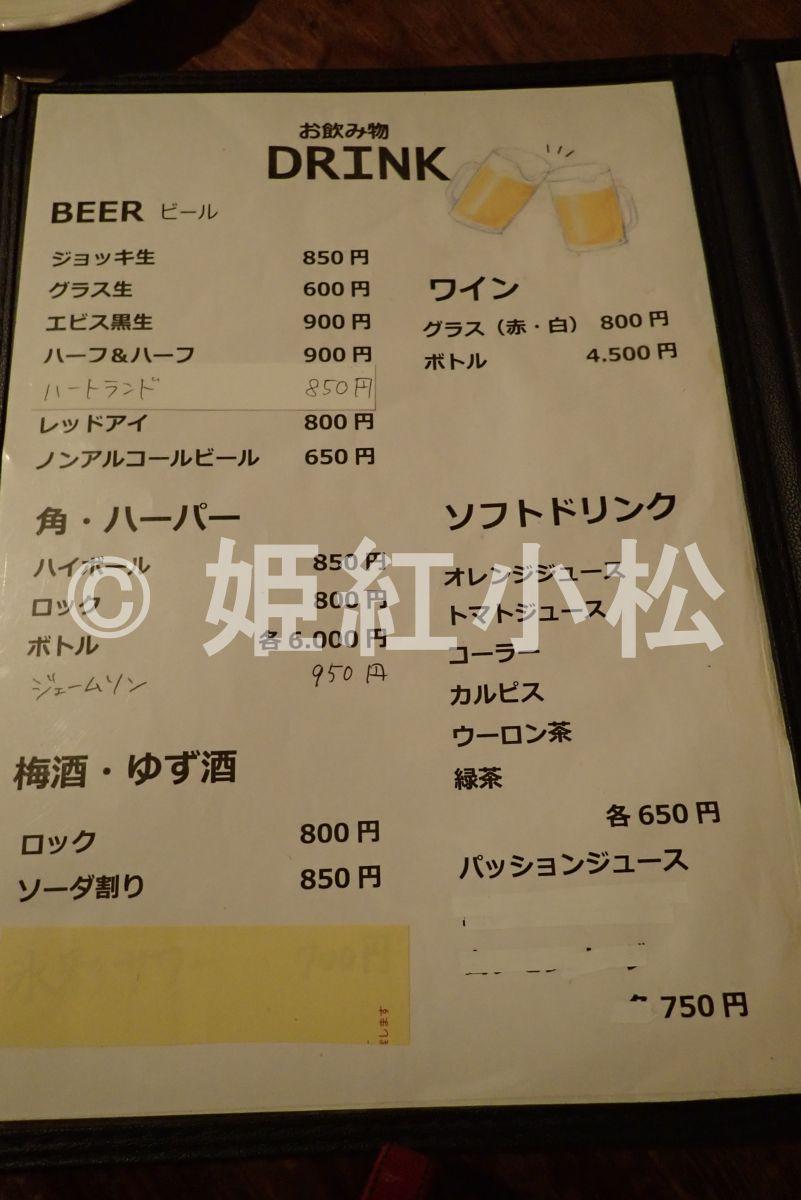 お飲み物
DRINK
BEER ビール
ジョッキ生 850円
グラス生 600円
エビス黒生 900円
ハーフ&ハーフ 900円
ハートランド 850円
レッドアイ 800円
ノンアルコールビール 650円
角・ハーパー
ハイボール 850円
ロック 800円
ボトル 各6.000円
ジェームソン 950円
梅酒・ゆず酒
ロック 800円
ソーダ割り 850円
700円
します
ワイン
グラス（赤・白） 800円
ボトル 4.500円
ソフトドリンク
オレンジジュース
トマトジュース
コーラー
カルピス
ウーロン茶
緑茶
各650円
パッションジュース
750円
© 姫紅小松